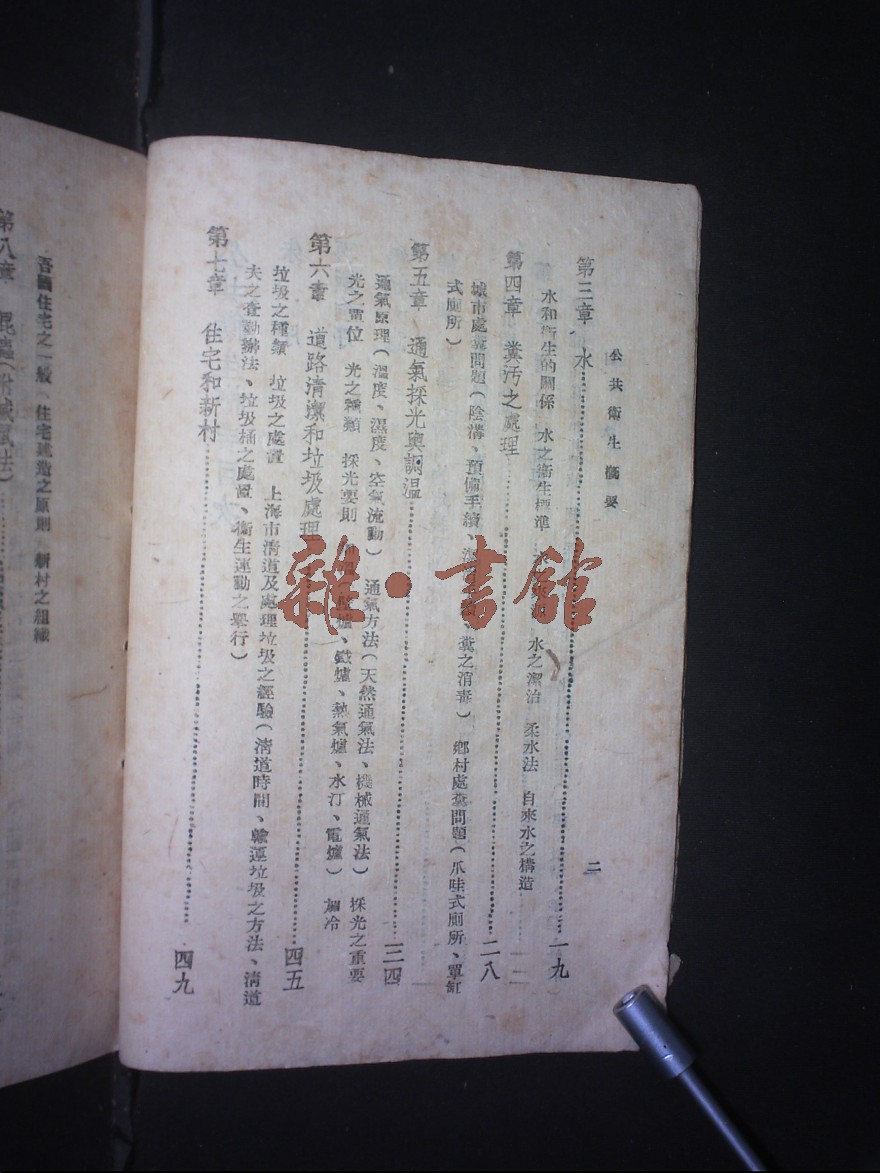 公共衛生概要
二
第三章 水 一九
水和衛生的關係 水之衛生標準 水之潔治 柔水法 自來水之構造
第四章 糞汚之處理 二八
城市處糞問題(陰溝、預備手續、糞之消毒) 鄉村處糞問題(爪哇式廁所、單缸
式廁所)
第五章 通氣採光與調溫 三四
通氣原理(溫度、濕度、空氣流動) 通氣方法(天然通氣法、機械通氣法) 採光之重要
光之單位 光之種類 採光要則 壁爐、鐵爐、熱氣爐、水汀、電爐) 加冷
第六章 道路清潔和垃圾處理 四五
垃圾之種類 垃圾之處置 上海市清道及處理垃圾之經驗(清道時間、輸運垃圾之方法、清道
夫之查勤辦法、垃圾桶之處置、衛生運動之舉行)
第七章 住宅和新村 四九
吾國住宅之一般 住宅建造之原則 新村之組織
第八章 昆蟲(附滅蝨法)
雜·書館